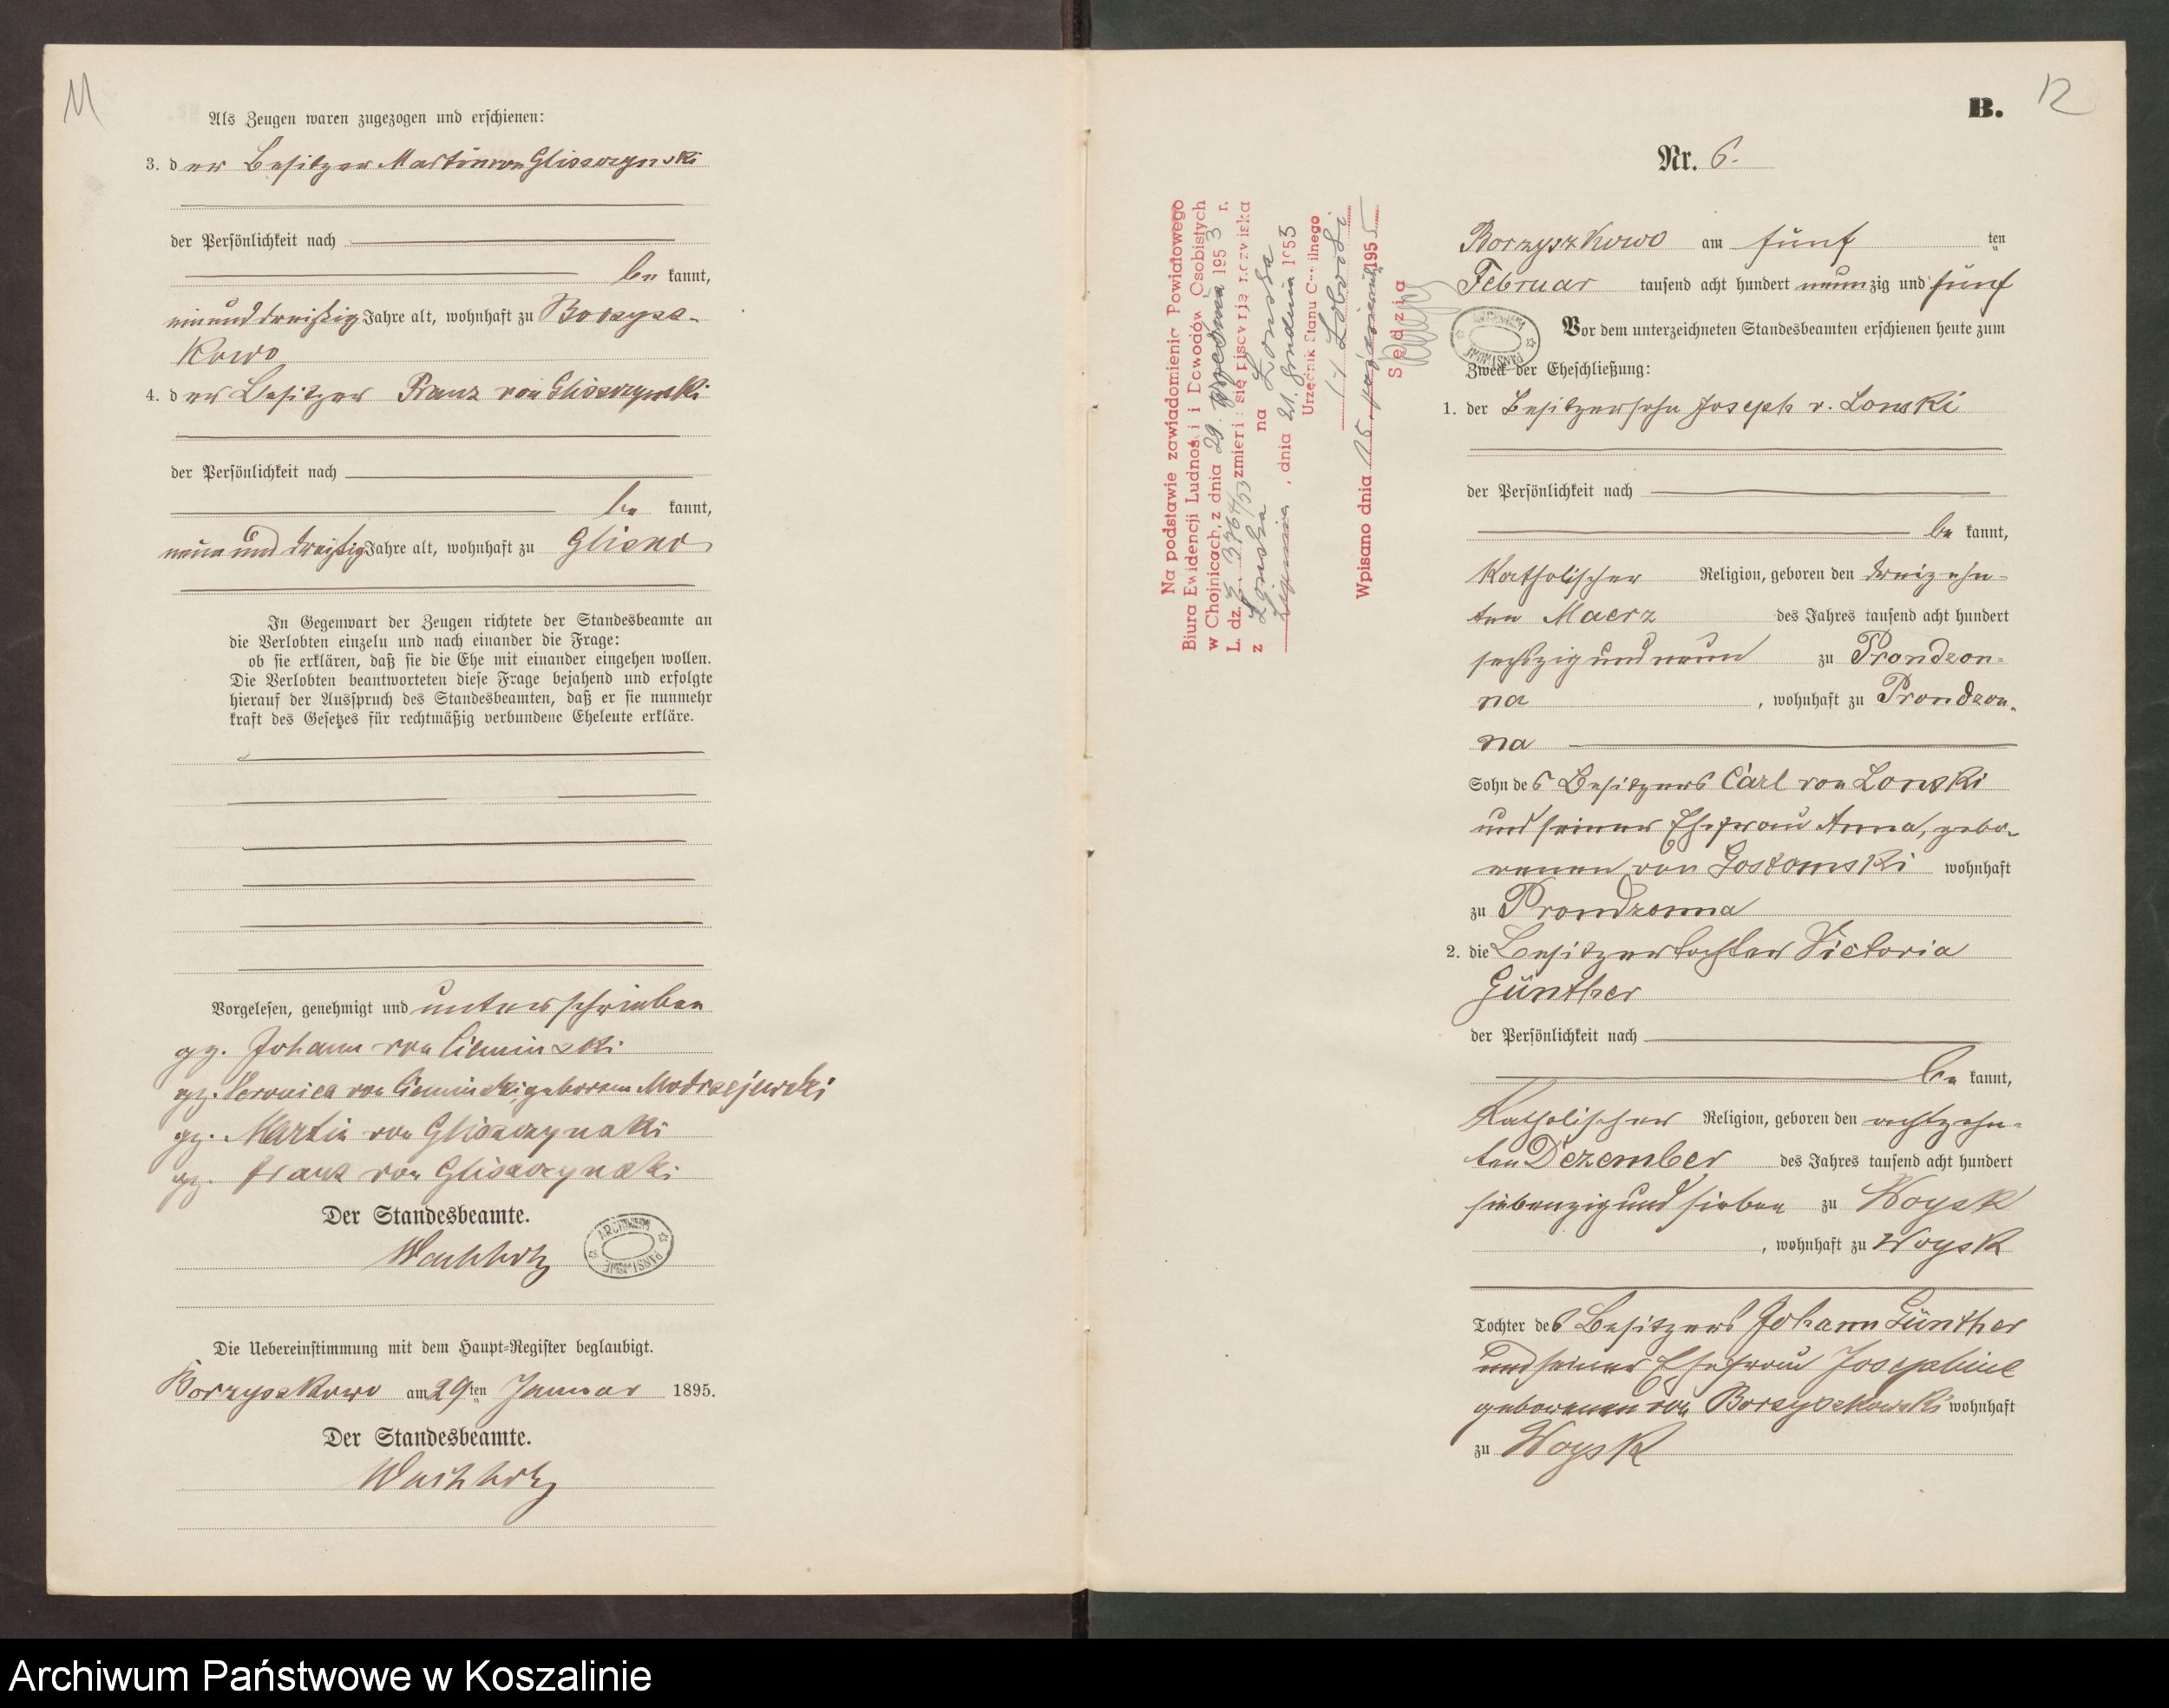 11
Als Zeugen waren zugezogen und erschienen:
3. der Besitzer Martin von Glisczynski
der Persönlichkeit nach
bekannt,
einunddreißig Jahre alt, wohnhaft zu Borzysz-
kowo
4. der Besitzer Franz von Glisczynski
der Persönlichkeit nach
bekannt,
neun und dreißig Jahre alt, wohnhaft zu Glisno
In Gegenwart der Zeugen richtete der Standesbeamte an
die Verlobten einzeln und nach einander die Frage:
ob sie erklären, daß sie die Ehe mit einander eingehen wollen.
Die Verlobten beantworteten diese Frage bejahend und erfolgte
hierauf der Ausspruch des Standesbeamten, daß er sie nunmehr
kraft des Gesetzes für rechtmäßig verbundene Eheleute erkläre.
Vorgelesen, genehmigt und unterschrieben
gz. Johann von Cieminski
gz. Veronica von Cieminski geborene Modrzejewski
gz. Martin von Glisczynski
gz. Franz von Glisczynski
Der Standesbeamte.
Wachholz
ARCHIWUM PAŃSTWOWE
Die Uebereinstimmung mit dem Haupt-Register beglaubigt.
Borzyszkowo am 29ten Januar 1895.
Der Standesbeamte.
Wachholz
B.
12
Nr. 6.
Borzyszkowo am fünf ten
Februar tausend acht hundert neunzig und fünf
Vor dem unterzeichneten Standesbeamten erschienen heute zum
Zweck der Eheschließung:
ARCHIWUM PAŃSTWOWE
1. der Besitzersohn Joseph v. Lonski
der Persönlichkeit nach
bekannt,
Katholischer Religion, geboren den dreizehn-
ten Maerz des Jahres tausend acht hundert
sechszig und neun zu Prondzon-
na, wohnhaft zu Prondzon-
na
Sohn des Besitzers Carl von Lonski
und seiner Ehefrau Anna, gebo-
renen von Gostomski wohnhaft
zu Prondzonna
2. die Besitzertochter Victoria
Günther
der Persönlichkeit nach
bekannt,
Katholischer Religion, geboren den achtzehn-
ten Dezember des Jahres tausend acht hundert
siebenzig und sieben zu Woysk
, wohnhaft zu Woysk
Tochter des Besitzers Johann Günther
und seiner Ehefrau Josephine
geborenen von Borzyszkowski wohnhaft
zu Woysk
Na podstawie zawiadomienia Powiatowego
Biura Ewidencji Ludności i Dowodów Osobistych
w Chojnicach, z dnia 29. września 1953 r.
L. dz. 3764/53 zmienia się pisownię nazwiska
z Lonska na Łońska
, dnia 21. grudnia 1953
Urzędnik Stanu Cywilnego
Wpisano dnia 15. października 1955
Sędzia
Archiwum Państwowe w Koszalinie